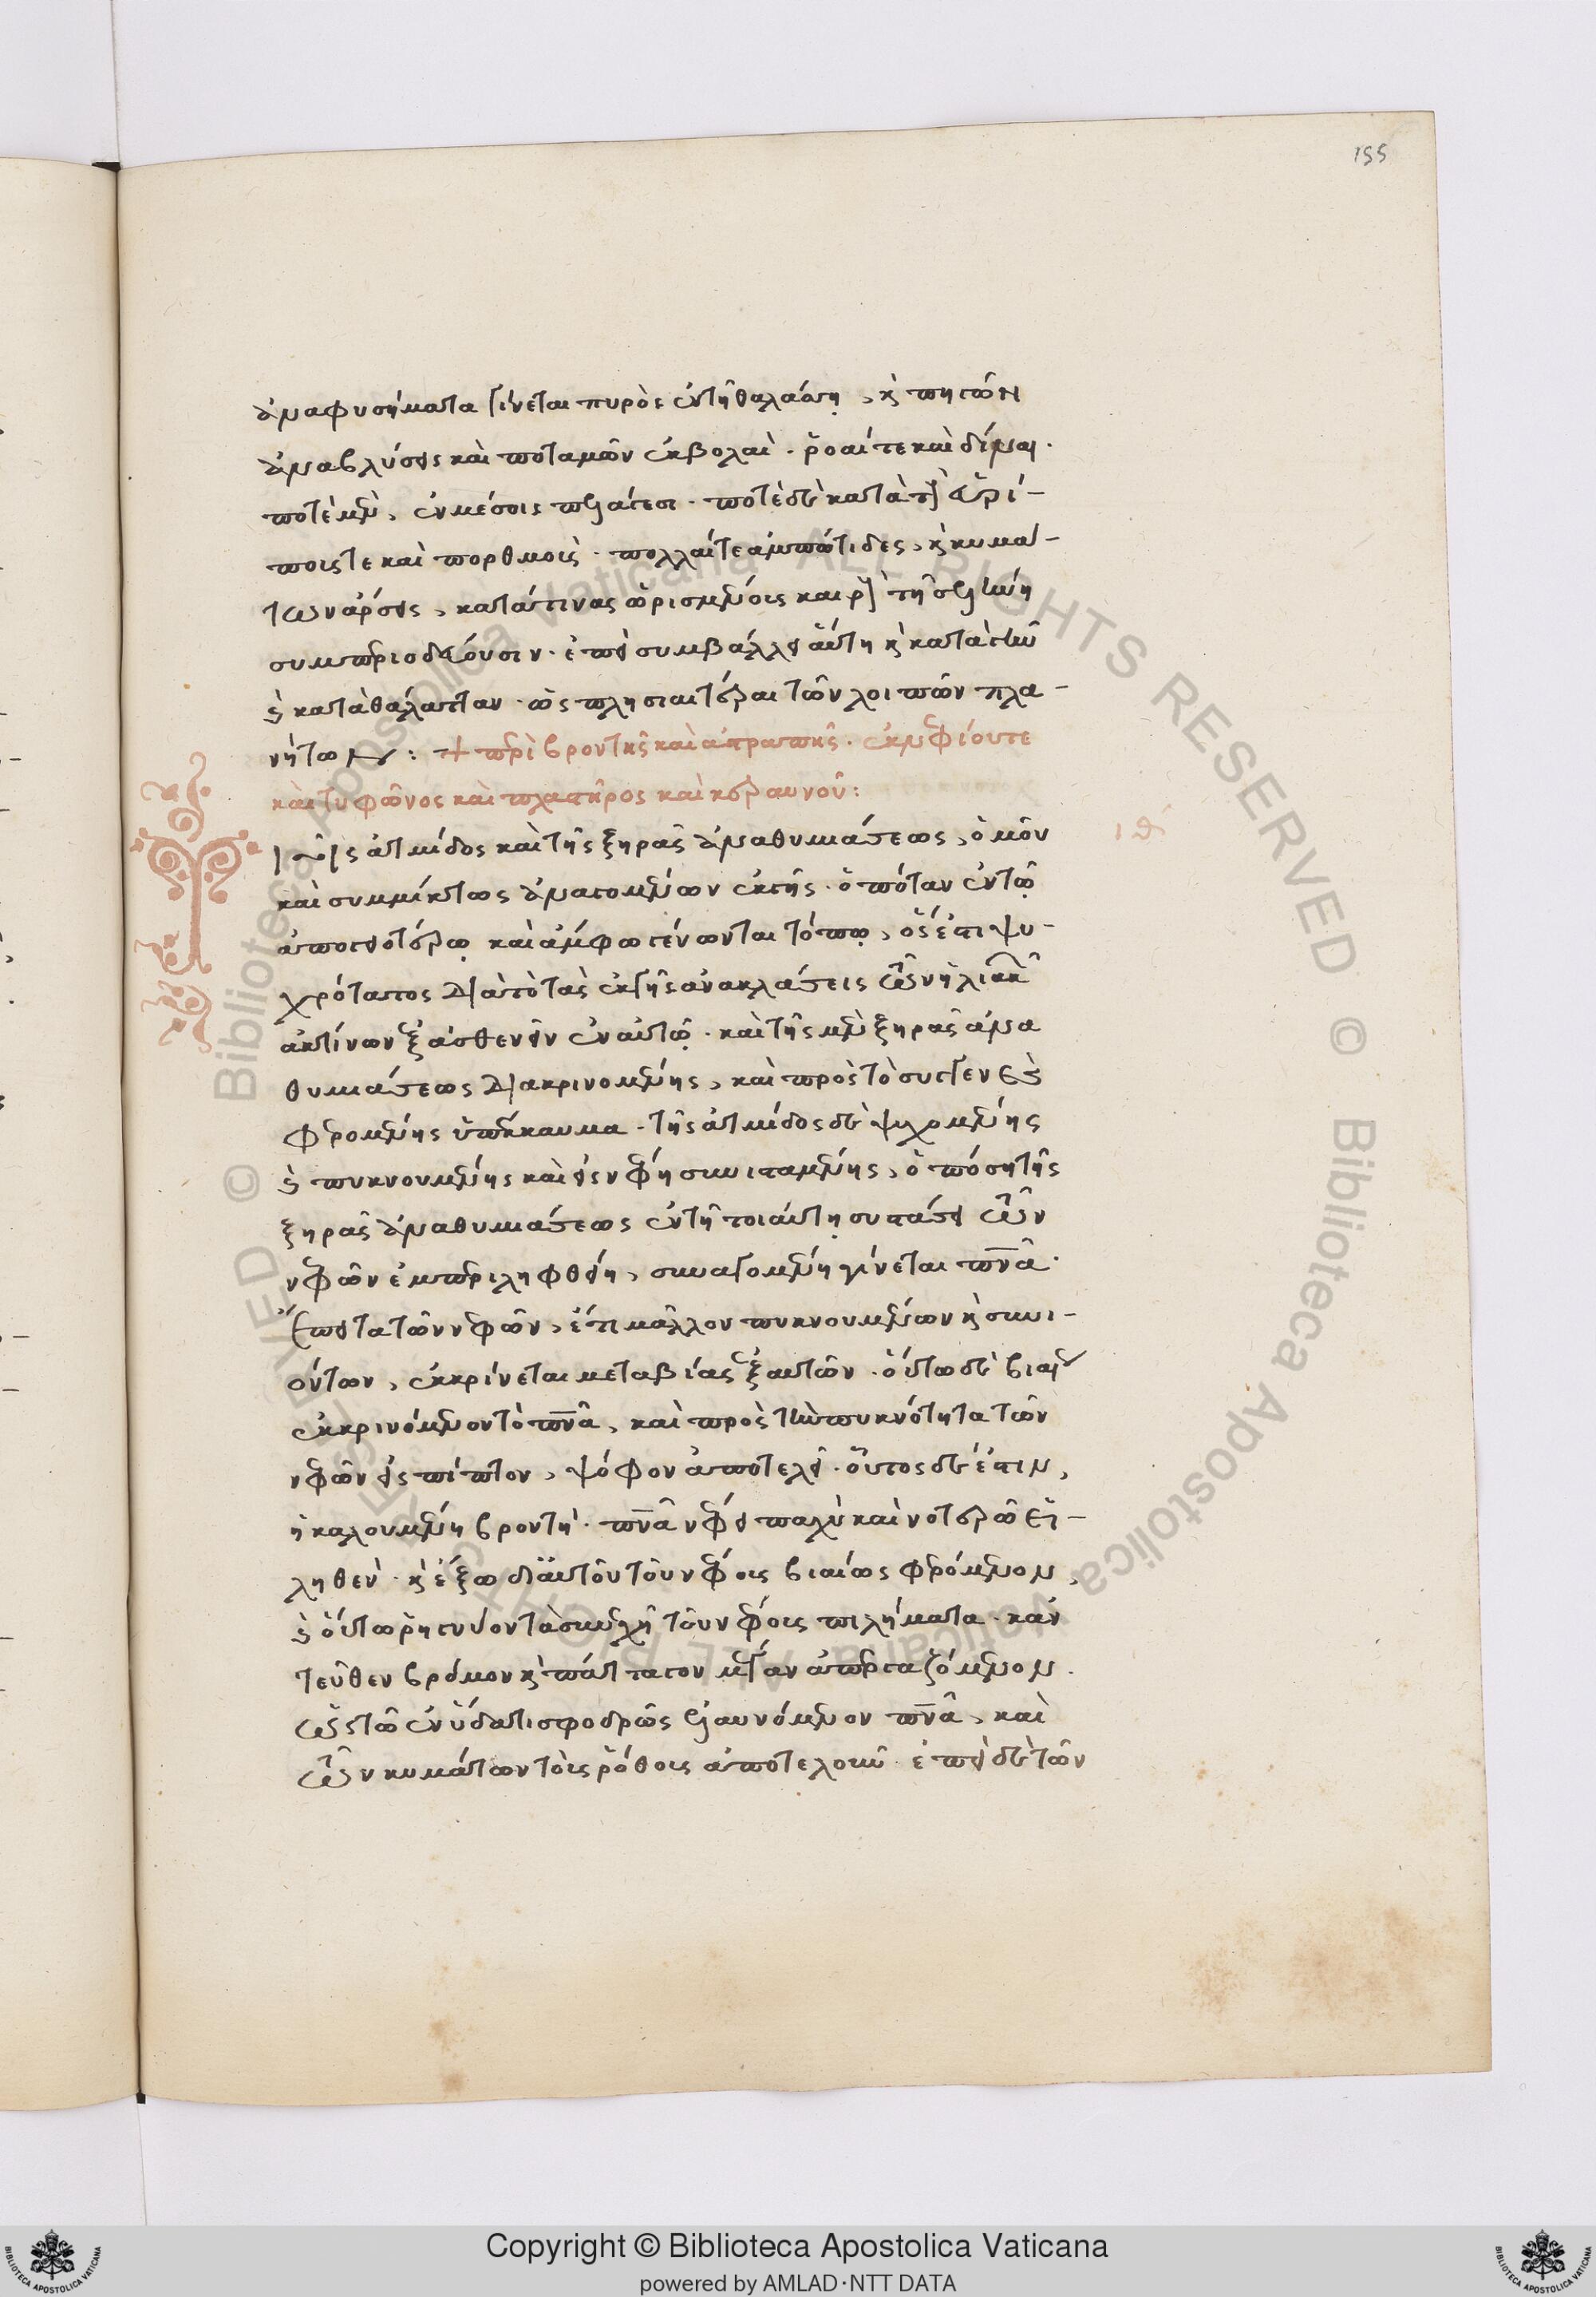 155
ἀναφυσήματα γίνεται πυρὸς ἐν τῇ θαλάσσῃ, κ πηγῶν
ἀναβλύσεις καὶ ποταμῶν ἐκβολαὶ. ῥοαί τε καὶ δῖναι.
ποτὲ μὲν, ἐν μέσοις πελάγεσι. ποτὲ δὲ κατὰ τοὺς εὐρί-
ποις τε καὶ πορθμοῖς. πολλαί τε ἀμπώτιδες, κ κυμά-
των ἄρσεις, κατά τινας ὡρισμένους καιροὺς τῇ σελήνῃ
συμπεριοδεύουσιν. ἐπεὶ συμβάλλει αὕτη κ κατὰ γῆν
κ κατὰ θάλατταν. ὡς πλησιαιτέρα τῶν λοιπῶν πλα-
νήτων: + περὶ βροντῆς καὶ ἀστραπῆς. ἐκνεφίου τε
καὶ τυφῶνος καὶ πρηστῆρος καὶ κεραυνοῦ:
ιθ
Τῆς ἀτμίδος καὶ τῆς ξηρᾶς ἀναθυμιάσεως, ὁμοῦ
καὶ συμμίκτως ἀναγομένων ἐκ γῆς. ὁπόταν ἐν τῷ
ἀπογειοτέρῳ καὶ ἄμφω γένωνται τόπῳ, ὅς ἐστι ψυ-
χρότατος διὰ τὸ τὰς ἐκ γῆς ἀνακλάσεις τῶν ἡλιακῶν
ἀκτίνων ἐξασθενεῖν ἐν αὐτῷ. καὶ τῆς μὲν ξηρᾶς ἀνα
θυμιάσεως διακρινομένης, καὶ πρὸς τὸ συγγενὲς
φερομένης ὑπέκκαυμα. τῆς ἀτμίδος δὲ ψυχομένης
κ πυκνουμένης καὶ εἰς νέφη συνισταμένης, ὁπόση τῆς
ξηρᾶς ἀναθυμιάσεως ἐν τῇ τοιαύτῃ συστάσει τῶν
νεφῶν ἐμπεριληφθείη, συναγομένη γίνεται πνᾶ.
ἔπειτα τῶν νεφῶν, ἔτι μᾶλλον πυκνουμένων κ συνι-
όντων, ἐκκρίνεται μετὰ βίας ἐξ αὐτῶν. οὕτω δὲ βιαίως
ἐκκρινόμενον τὸ πνᾶ, καὶ πρὸς τὴν πυκνότητα τῶν
νεφῶν εἰσπίπτον, ψόφον ἀποτελεῖ. οὗτος δέ ἐστιν,
ἡ καλουμένη βροντή. πνᾶ νέφει παχεῖ καὶ νοτερῷ εἰ-
ληθὲν. κ ἔξω δι' αὐτοῦ τοῦ νέφους βιαίως φερόμενον,
κ οὕτω ῥηγνύον τὰ συνεχῆ τοῦ νέφους πιλήματα. κἀν
τεῦθεν βρόμον κ πάταγον μέγαν ἀπεργαζόμενον.
ὡς τῷ ἐν ὕδατι σφοδρῶς ἐλαυνόμενον πνᾶ, καὶ
τῶν κυμάτων τοῖς ῥόθοις ἀποτελοῦν. ἐπεὶ δὲ τῶν
Copyright © Biblioteca Apostolica Vaticana
powered by AMLAD·NTT DATA